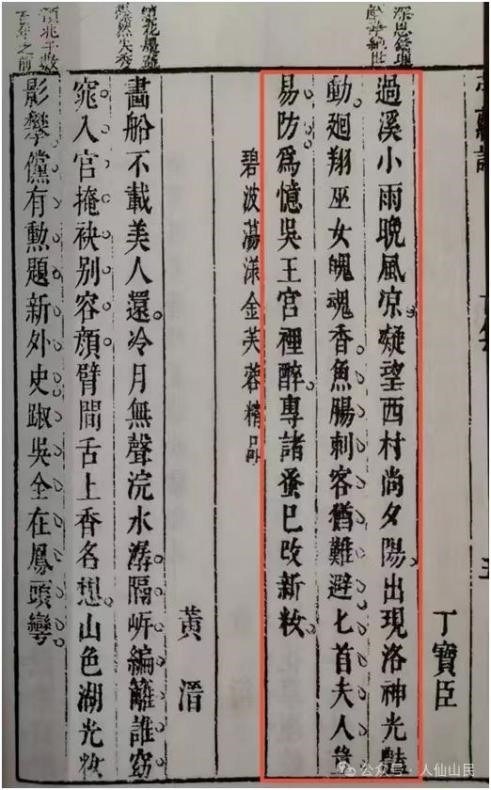 丁寶臣
過溪小雨晚風凉凝望西村尚夕陽出現洛神光豔
動廻翔巫女魄魂香魚腸刺客猶難避匕首夫人豈
易防為憶吳王宮裡醉專諸蚤已改新妝
碧波蕩漾金芙蓉精品
黃溍
畵船不載美人還冷月無聲浣水潺隔岍編籬誰窈
窕入宮掩袂别容顏臂間舌上香名想山色湖光
影攀儻有勲題新外史踧吳全在鳳頭彎
公众号·人仙山民